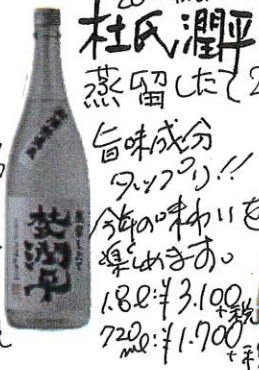 杜氏潤平
蒸留したて2
旨味成分
タップリ!!
今年の味わいを
楽しめます。
1.8ℓ:¥3,100+税
720mℓ:¥1,700+税
杜氏潤平